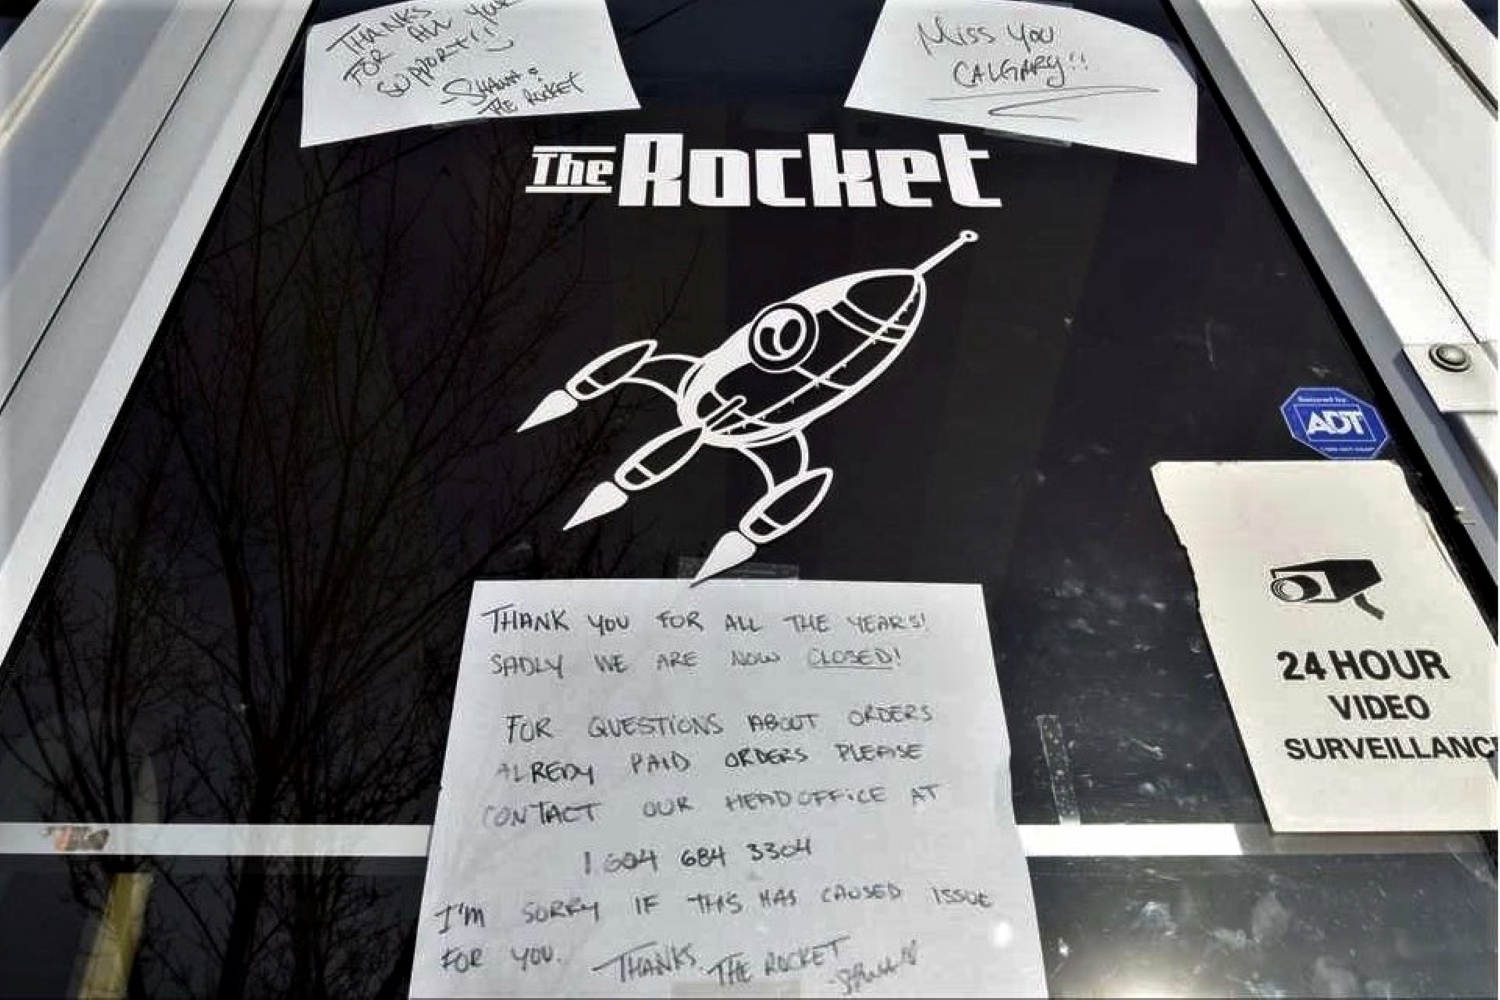 THANKS
FOR ALL YOUR
SUPPORT!!
-SHAWNA &
THE ROCKET
MISS YOU
CALGARY!!
The Rocket
Secured by
ADT
THANK YOU FOR ALL THE YEARS!
SADLY WE ARE NOW CLOSED!
FOR QUESTIONS ABOUT ORDERS
ALREDY PAID ORDERS PLEASE
CONTACT OUR HEADOFFICE AT
1 604 684 3304
I'M SORRY IF THIS HAS CAUSED ISSUE
FOR YOU. THANKS. THE ROCKET
24 HOUR
VIDEO
SURVEILLANCE